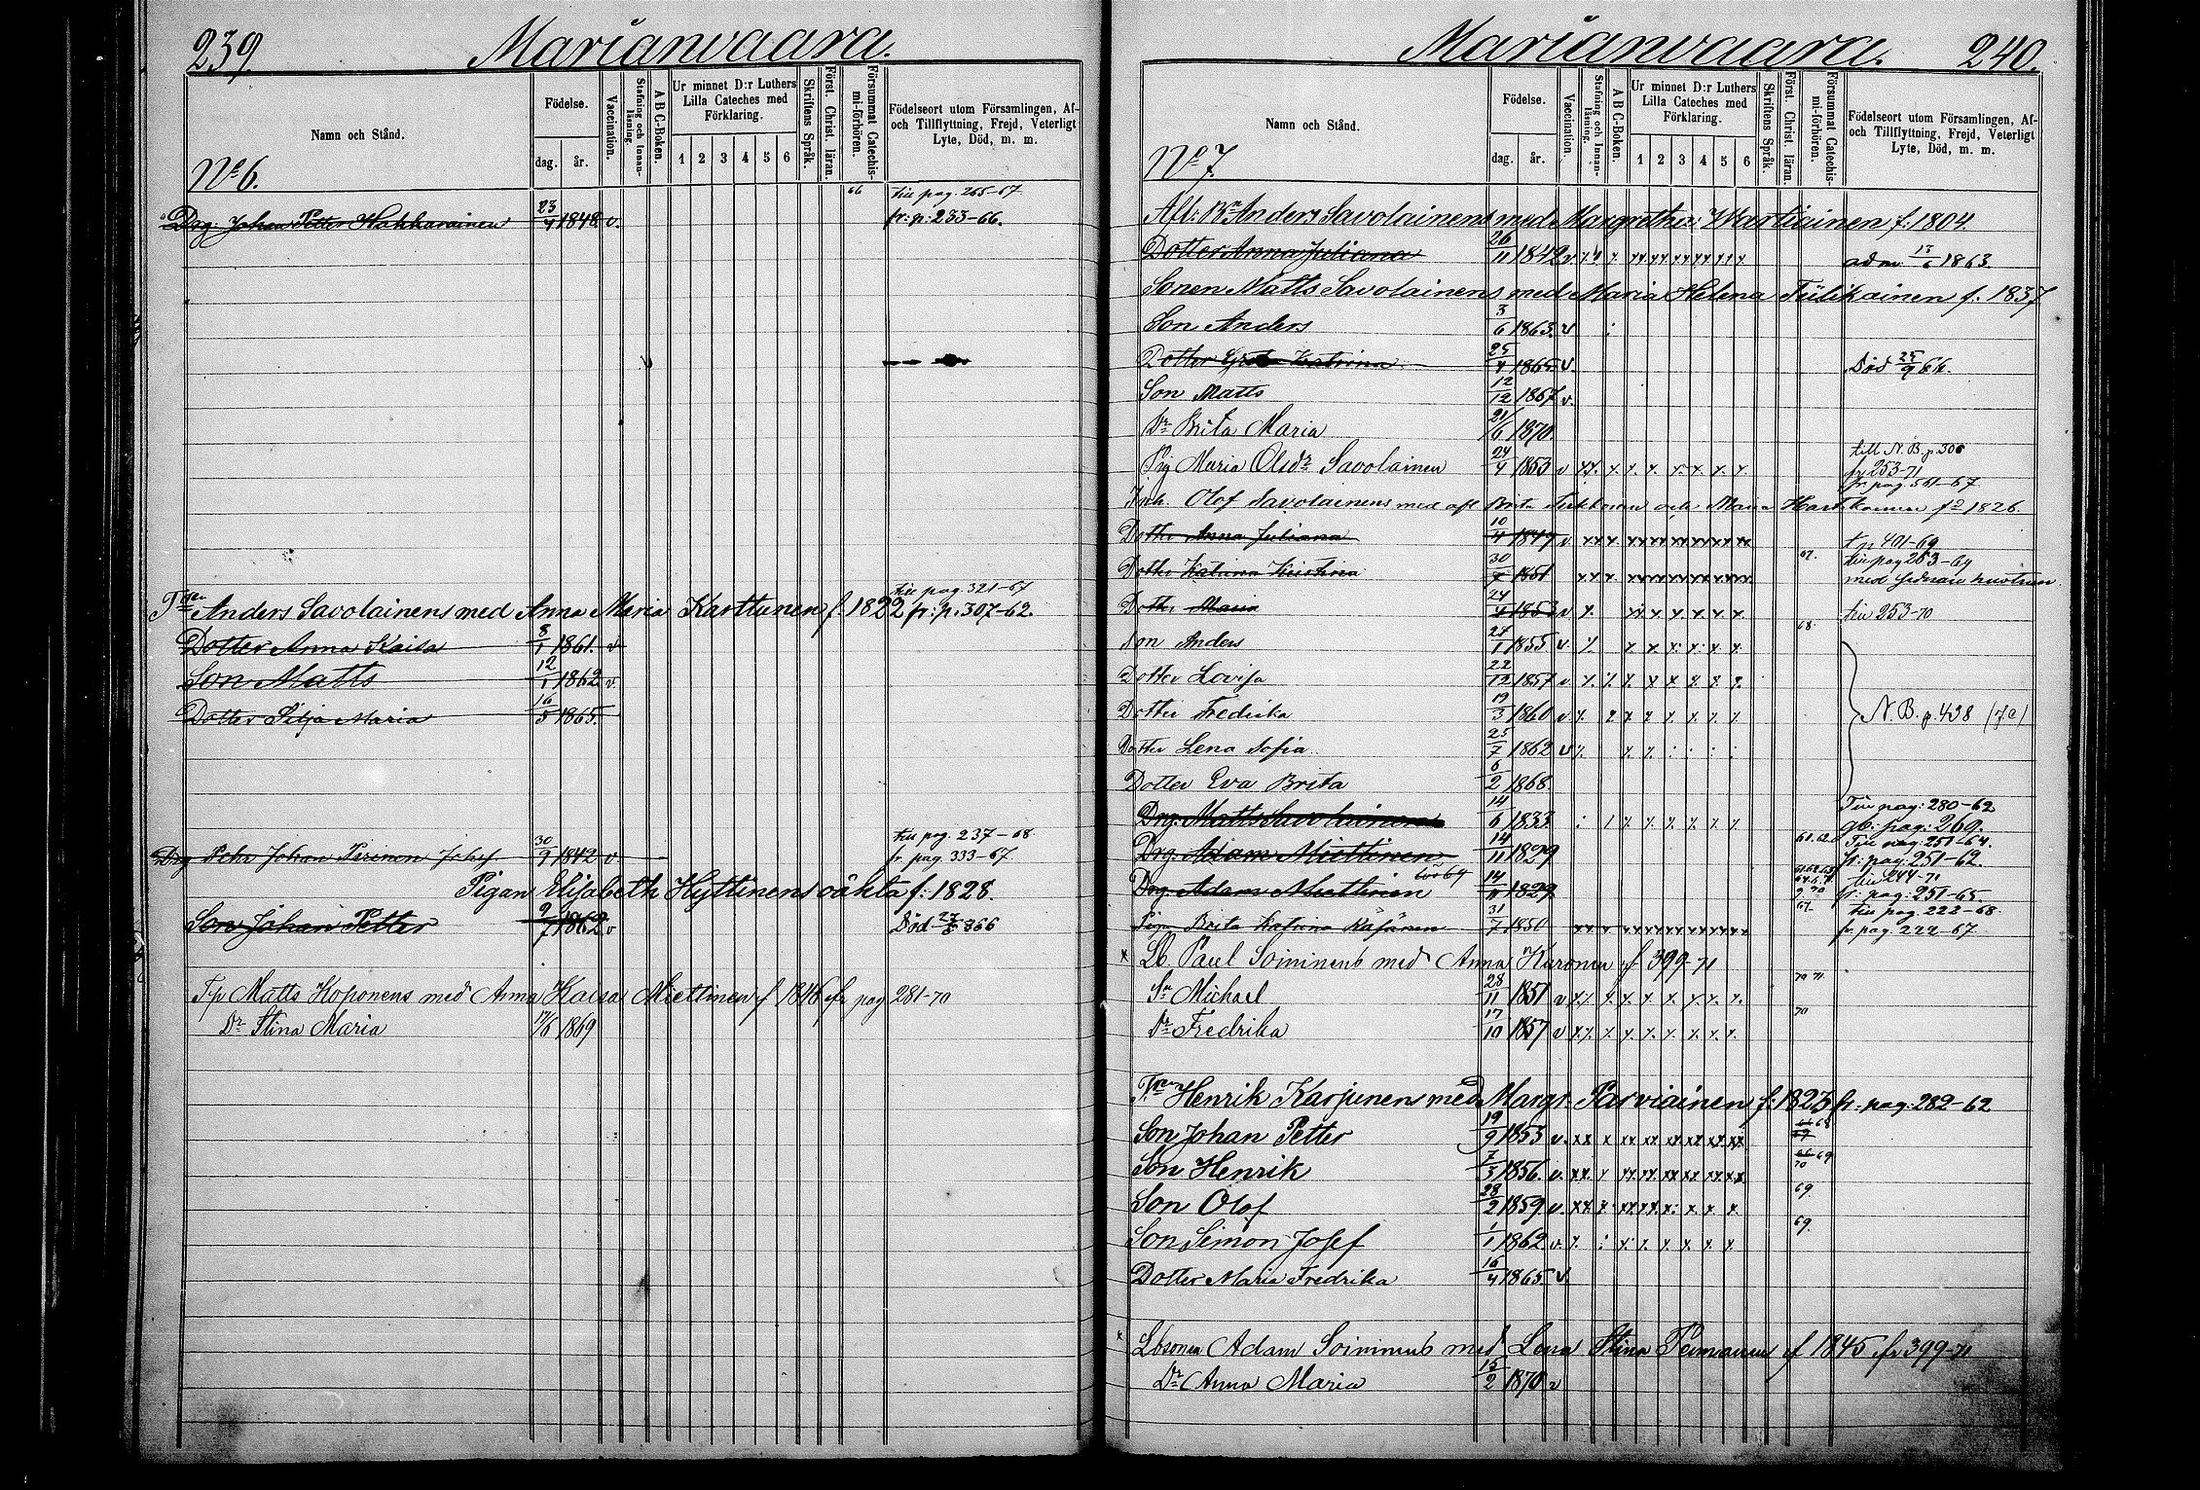 239. Marianvaara.
Namn och Stånd.
Födelse.
dag. år.
Vaccination.
Stafning och Innan-läsning.
A B C-Boken.
Ur minnet D:r Luthers Lilla Cateches med Förklaring.
1 2 3 4 5 6
Skriftens Språk.
Först. Christ. läran.
Försummat Catechis-mi-förhören.
Födelseort utom Församlingen, Af- och Tillflyttning, Frejd, Veterligt Lyte, Död, m. m.
No 6.
66 till pag. 265-67
Drg. Johan Petter Hakkarainen 23/4 1848 v. fr: p: 233-66.
till pag. 321-67
Anders Savolainens med Anna Maria Karttunen f. 1822 fr: p. 307-62.
Dotter Anna Kaisa 8/1 1861. v
Son Matts 12/1 1862 v.
Dotter Pitja Maria 16/5 1865.
till pag. 237-68
Drg Pehr Johan Piirinen Johsf. 30/9 1842 v fr. pag. 333-67.
Pigan Elisabeth Hyttinens oäkta f: 1828.
Son Johan Petter 9/7 1862 v Död
Matts Koponens med Anna Kaisa Miettinen f 1846 fr pag 281-70
Dr Stina Maria 17/6 1869
Marianvaara. 240.
Namn och Stånd.
Födelse.
dag. år.
Vaccination.
Stafning och Innan-läsning.
A B C-Boken.
Ur minnet D:r Luthers Lilla Cateches med Förklaring.
1 2 3 4 5 6
Skriftens Språk.
Först. Christ. läran.
Försummat Catechis-mi-förhören.
Födelseort utom Församlingen, Af- och Tillflyttning, Frejd, Veterligt Lyte, Död, m. m.
No 7.
Afl: Anders Savolainens med Margretha Wartiainen f: 1804.
Dotter Anna Juliana 26/11 1842 v adm 1863.
Sonen Matts Savolainens med Maria Helena Tiilikainen f. 1837
Son Anders 3/6 1863. v
Dotter Greta Katrina 25/4 1865 v. Död 25/9 66.
Son Matts 12/12 1867 v.
Dr Brita Maria 21/6 1870
till N. B. p. 306
Pig Maria Olsdr Savolainen 24/4 1853 v fr 253-71
fr. pag. 561-67
Inh. Olof Savolainens med afl Brita och Maria f 1826.
Dotter Anna Juliana 10/4 1849 v. t p 401-69
Dotter Katrina Kristina 30/7 1851 67. till pag 253-69
Dotter Maria 24/4 1853 v till 253-70
68.
Son Anders 27/1 1855 v
Dotter Lovisa 22/12 1857 v
Dotter Fredrika 19/3 1860 v N. B. p. 438
Dotter Lena Sofia 25/7 1862 v
Dotter Eva Brita 6/2 1868.
Till pag: 280-62
Drg. Matts Savolainen 14/6 1833. pag: 269.
61. 62. Till pag: 251-64.
Drg. Adam Miettinen 14/11 1829 fr. pag: 251-62
till 244-71
Drg. Adam Miettinen 14/11 1829 fr: pag: 251-65.
67. till pag. 222-68.
Pigan Brita Katrina Räsänen 31/7 1850 fr. pag. 222-67.
x Lb. Paul Soininens med Anna Kuronen fr 399-71
70 71
Sn Michael 28/11 1851 v
70
Dr Fredrika 17/10 1857 v
Henrik Karjunens med Margr. Parviainen f: 1823 fr: pag: 282-62
Son Johan Petter 19/9 1853 v.
Son Henrik 7/3 1856. v. 70
Son Olof 28/2 1859 v. 69.
Son Simon Josef 1/1 1862 v. 69.
Dotter Maria Fredrika 16/4 1865 v
x Lbsonen Adam Soininens med Lena Stina f 1845 fr 399-71
Dr Anna Maria 15/2 1870 v